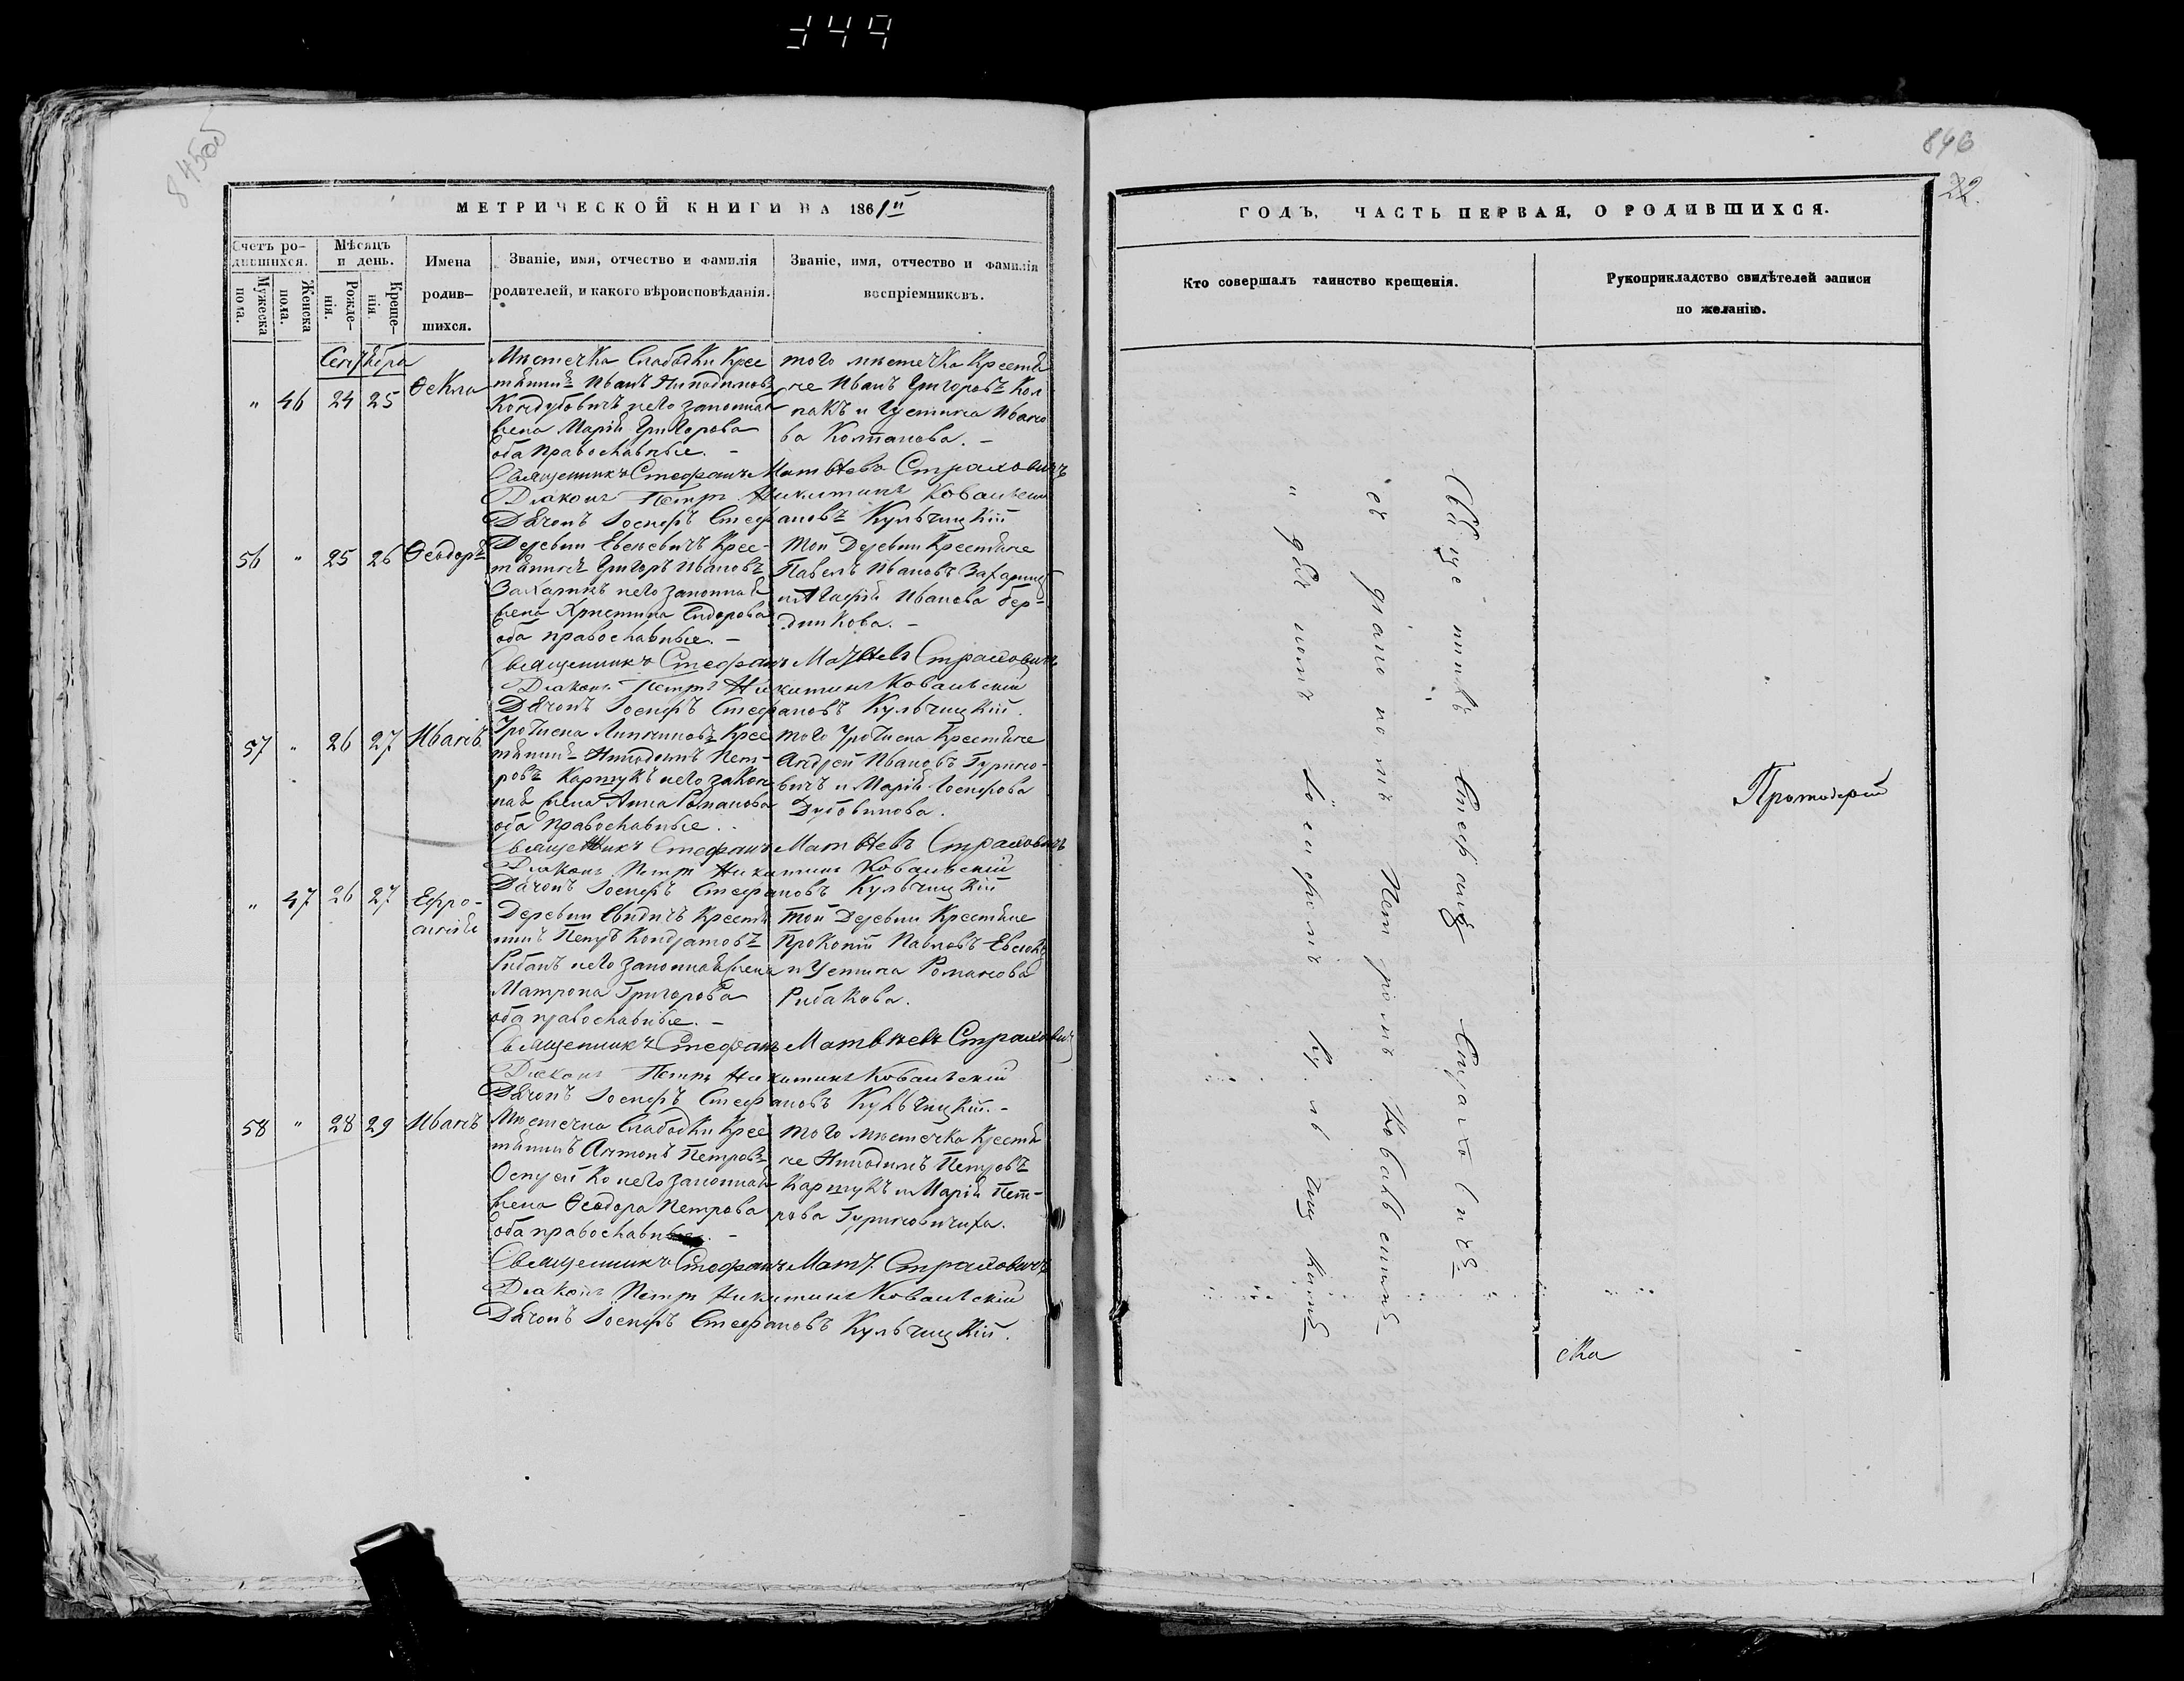 349
845об
846
22.
МЕТРИЧЕСКОЙ КНИГИ НА 1861 й
Счетъ ро-
дившихся.
Мужеска
пола.
Женска
пола.
Мѣсяцъ
и день.
Рожде-
нія.
Креще-
нія.
Имена
родив-
шихся.
Званіе, имя, отчество и фамилія
родителей, и какого вѣроисповѣданія.
Званіе, имя, отчество и фамилія
воспріемниковъ.
Сентября
" 46 24 25 Ѳекла
Мѣстечка Слабодки Крес
тянинъ Иванъ Никодимовъ
Кондубовичъ и его законная
жена Марія Григорова
оба православные. –
того мѣстечка Крестя
не Иванъ Григоровъ Кол
пакъ и Устина Ивано
ва Колпакова. –
Священникъ Стефанъ Матвѣевъ Страховичъ
Діаконъ Петръ Никитинъ Ковальскій
Дячокъ Іосифъ Стефановъ Кульчицкій
56 " 25 26 Ѳеодоръ
Деревни Евсѣевичъ Крес-
тянинъ Григоръ Ивановъ
Захарикъ и его законная
жена Христина Сидорова
оба православные. –
той Деревни Крестяне
Павелъ Ивановъ
и Агафія Иванова бер-
дникова. –
Священникъ Стефанъ Матвѣевъ Страховичъ
Діаконъ Петръ Никитинъ Ковальскій
Дячокъ Іосифъ Стефановъ Кульчицкій.
57 " 26 27 Иванъ
Крес
тянинъ Никодимъ Пет-
ровъ Картукъ и его закон
ная жена Анна Романова
оба православные.
того Урочиска Крестяне
Андрей Ивановъ Гурино-
вичъ и Марія Іосифова
Дубовикова.
Священникъ Стефанъ Матвѣевъ Страховичъ
Діаконъ Петръ Никитинъ Ковальскій
Дячокъ Іосифъ Стефановъ Кульчицкій
" 47 26 27 Ефро-
синія
Деревни Свидичъ Крестя
нинъ Петръ Кондратовъ
Рибакъ и его законная жена
Матрона Григорова
оба православные. –
той Деревни Крестяне
Прокопій Павловъ
и Устина Романова
Рибакова.
Священникъ Стефанъ Матвѣевъ Страховичъ
Діаконъ Петръ Никитинъ Ковальскій
Дячокъ Іосифъ Стефановъ Кульчицкій. –
58 " 28 29 Иванъ
Мѣстечка Слабодки Крес
тянинъ Антонъ Петровъ
Остей ко и его законная
жена Ѳеодора Петрова
оба православные. –
того мѣстечка Крестя
не Никодимъ Петровъ
Картукъ и Марія Пет-
рова Гуриновичиха.
Священникъ Стефанъ Матв. Страховичъ
Діаконъ Петръ Никитинъ Ковальскій
Дячокъ Іосифъ Стефановъ Кульчицкій.
ГОДЪ, ЧАСТЬ ПЕРВАЯ, О РОДИВШИХСЯ.
Кто совершалъ таинство крещенія.
Рукоприкладство свидѣтелей записи
по желанію.
Священникъ Стефанъ Страховичъ
съ діакономъ Петромъ Ковальскимъ
" дячкомъ Іосифомъ Кульчицкимъ
Протоіерей